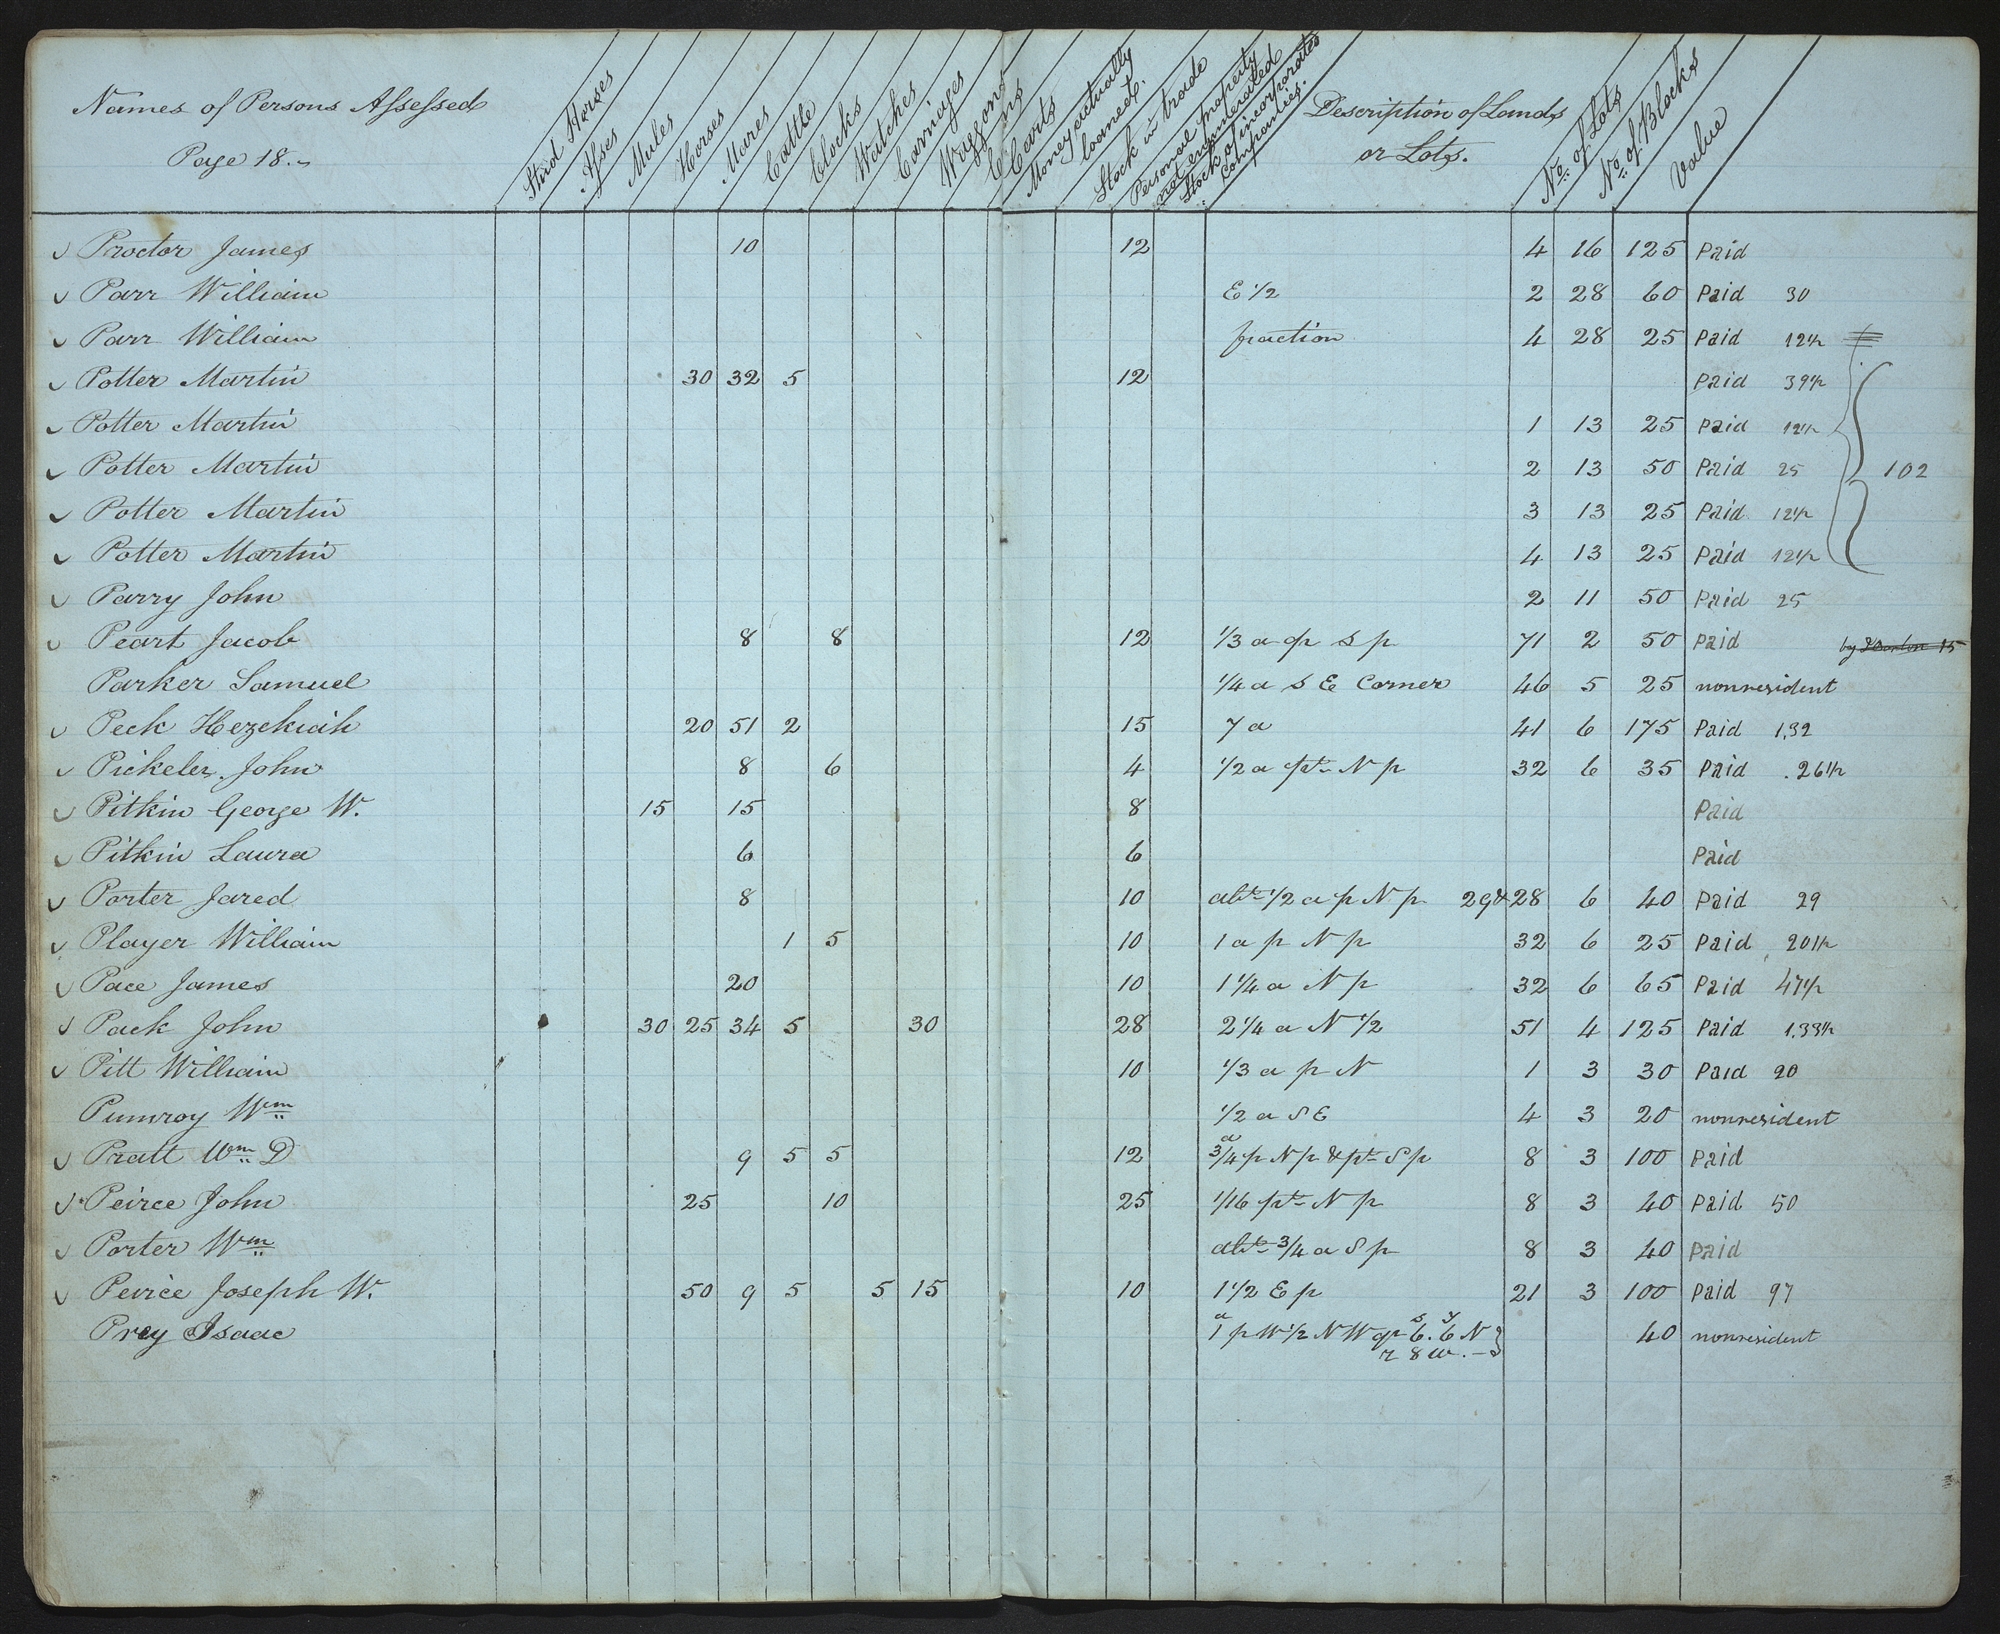 Names of Persons Assessed
Page 18.
Stud Horses
Asses
Mules
Horses
Mares
Cattle
Clocks
Watches
Carriages
Waggons
Carts
Money actually loaned.
Stock in trade
Personal property not enumerated
Stock of incorporated companies.
Description of Lands or Lots.
No. of Lots
No. of Blocks
Value
Proctor James 10 12 4 16 125 Paid
Parr William E 1/2 2 28 60 Paid 30
Parr William fraction 4 28 25 Paid 12 1/2
Potter Martin 30 32 5 12 Paid 39 1/2
Potter Martin 1 13 25 Paid 12 1/2
Potter Martin 2 13 50 Paid 25 102
Potter Martin 3 13 25 Paid 12 1/2
Potter Martin 4 13 25 Paid 12 1/2
Parry John 2 11 50 Paid 25
Peart Jacob 8 8 12 1/3 a qr S p 71 2 50 Paid by 15
Parker Samuel 1/4 a S E Corner 46 5 25 nonresident
Peck Hezekiah 20 51 2 15 7 a 41 6 175 Paid 1,32
Pickeler John 8 6 4 1/2 a pt N p 32 6 35 Paid .26 1/2
Pitkin George W. 15 15 8 Paid
Pitkin Laura 6 6 Paid
Porter Jared 8 10 abt 1/2 a p N p 29 & 28 6 40 Paid 29
Player William 1 5 10 1 a p N p 32 6 25 Paid 20 1/2
Pace James 20 10 1 1/4 a N p 32 6 65 Paid 47 1/2
Pack John 30 25 34 5 30 28 2 1/4 a N 1/2 51 4 125 Paid 1,33 1/2
Pitt William 10 1/3 a p N 1 3 30 Paid 20
Pumroy Wm 1/2 a S E 4 3 20 nonresident
Pratt Wm D 9 5 5 12 3/4 a p N p & pt S p 8 3 100 Paid
Peirce John 25 10 25 1/16 pt N p 8 3 40 Paid 50
Porter Wm abt 3/4 a S p 8 3 40 Paid
Peirce Joseph W. 50 9 5 5 15 10 1 1/2 E p 21 3 100 Paid 97
Prey Isaac 1 a p W 1/2 N W qr S 6. T 6 N 40 nonresident
r 8 W.